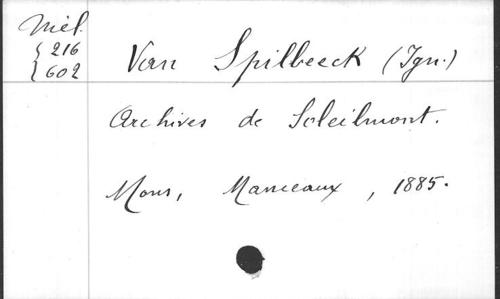 Mél.
{216
{602
Van Spilbeeck (Ign.)
Archives de Soleilmont.
Mons, Manceaux, 1885.